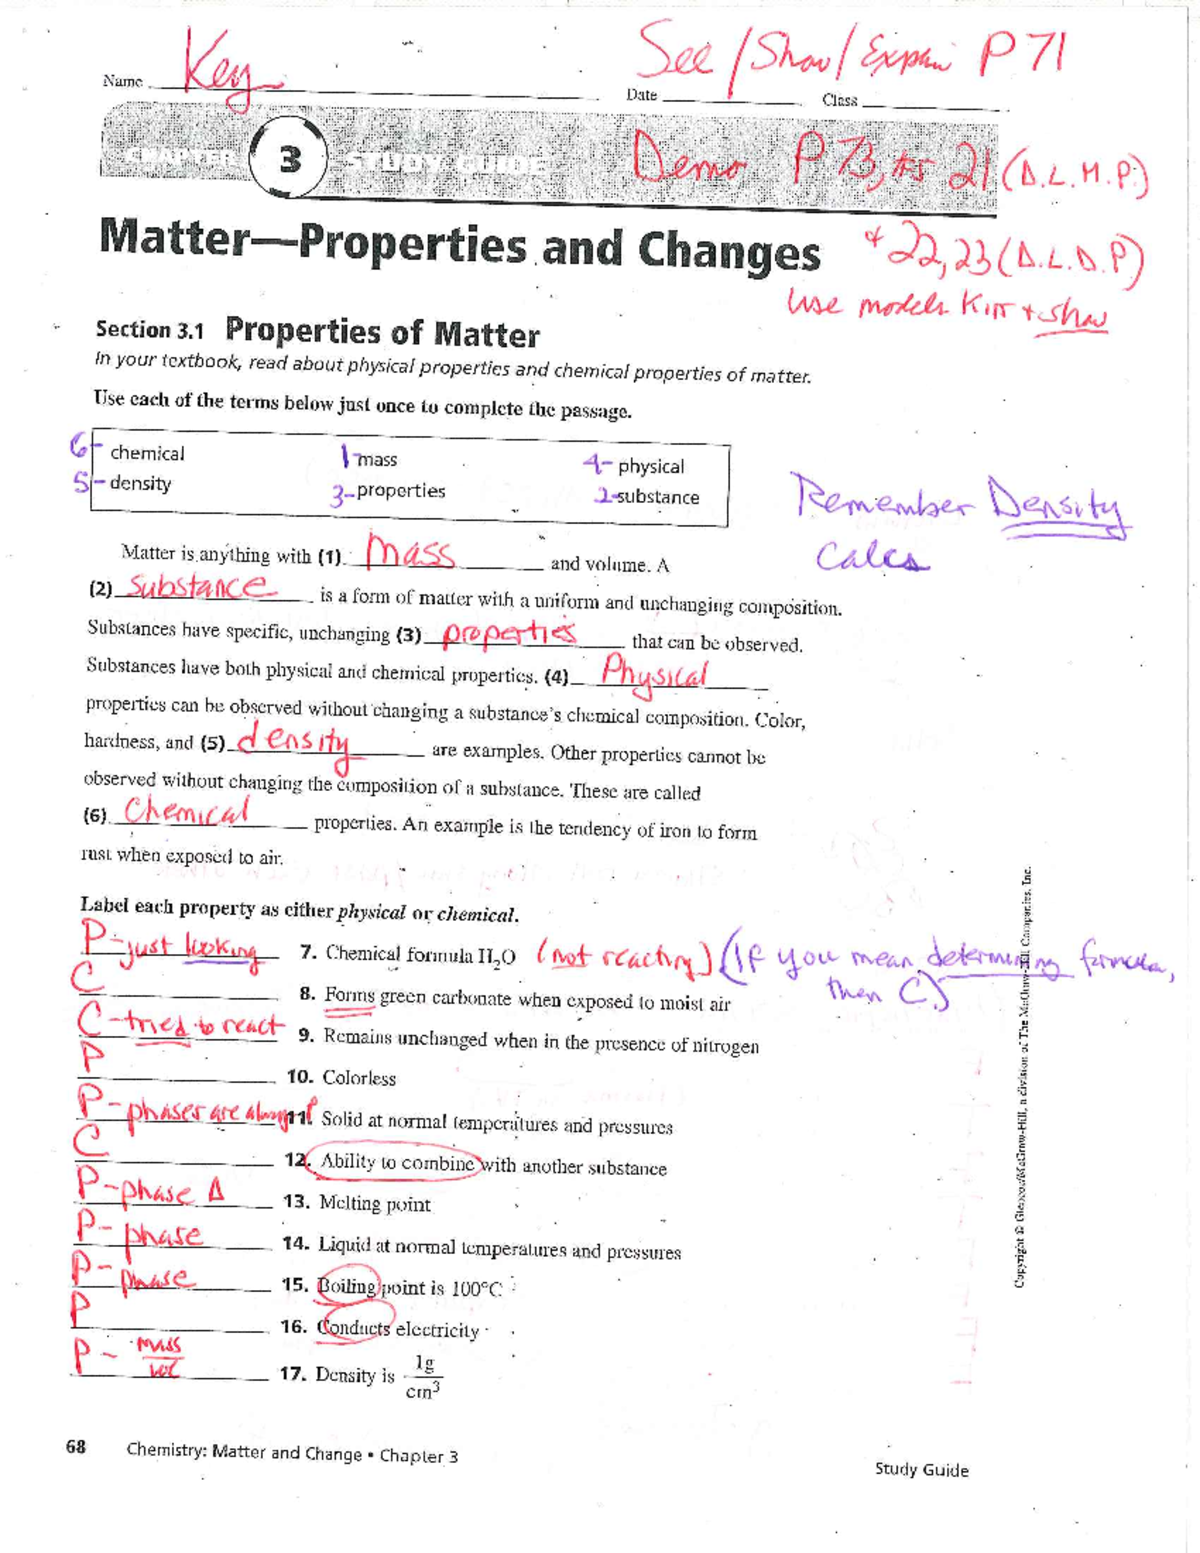 Key
See / Show / Explain P 71
Name
Date
Class
CHAPTER 3 STUDY GUIDE
Demo P 73, #s 21 (D.L.M.P.)
Matter—Properties and Changes
& 22, 23 (D.L.D.P)
Use models Kit + show
Section 3.1 Properties of Matter
In your textbook, read about physical properties and chemical properties of matter.
Use each of the terms below just once to complete the passage.
6- chemical 1- mass 4- physical
5- density 3- properties 2- substance
Remember Density
Calcs
Matter is anything with (1) Mass and volume. A
(2) Substance is a form of matter with a uniform and unchanging composition.
Substances have specific, unchanging (3) properties that can be observed.
Substances have both physical and chemical properties. (4) Physical
properties can be observed without changing a substance's chemical composition. Color,
hardness, and (5) density are examples. Other properties cannot be
observed without changing the composition of a substance. These are called
(6) Chemical properties. An example is the tendency of iron to form
rust when exposed to air.
Label each property as either physical or chemical.
P-just looking 7. Chemical formula H₂O (not reacting) (If you mean determining formula,
then C)
C 8. Forms green carbonate when exposed to moist air
C-tried to react 9. Remains unchanged when in the presence of nitrogen
P 10. Colorless
P-phases are always P 11. Solid at normal temperatures and pressures
C 12. Ability to combine with another substance
P-phase Δ 13. Melting point
P-phase 14. Liquid at normal temperatures and pressures
P-phase 15. Boiling point is 100°C
P 16. Conducts electricity
P- mass/vol 17. Density is 1g/cm³
Copyright © Glencoe/McGraw-Hill, a division of The McGraw-Hill Companies, Inc.
68 Chemistry: Matter and Change • Chapter 3
Study Guide